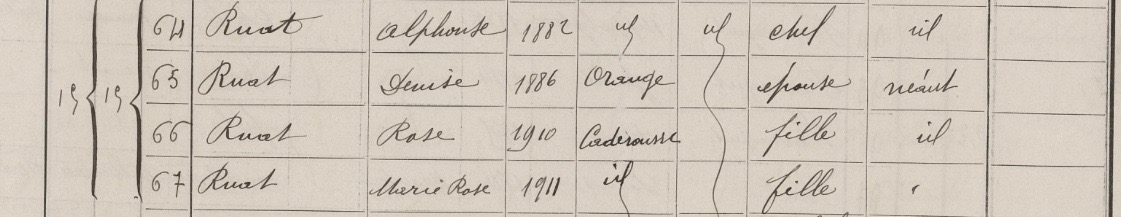 19 19 64 Ruat Alphonse 1882 id id chef id
65 Ruat Denise 1886 Orange épouse néant
66 Ruat Rose 1910 Caderousse fille id
67 Ruat Marie Rose 1911 id fille "